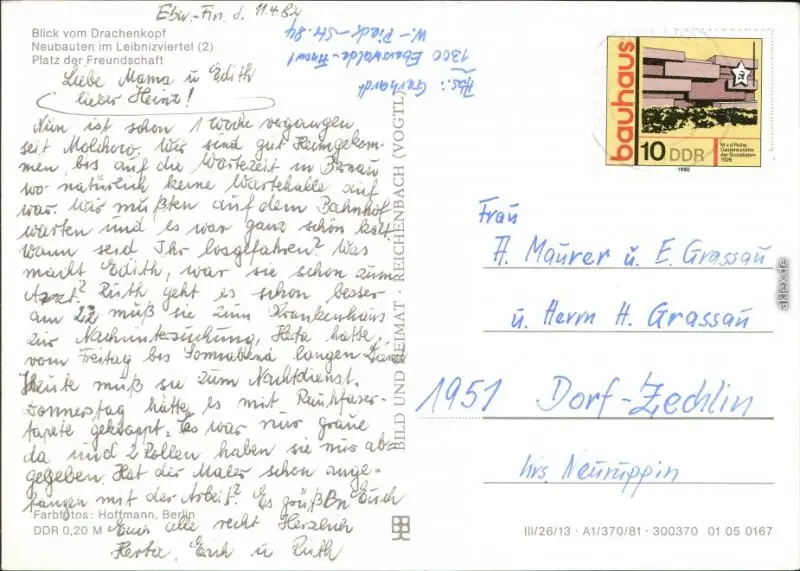 Ebw.-Fin. d. 11.4.82
Blick vom Drachenkopf
Neubauten im Leibnizviertel (2)
Platz der Freundschaft
Abs.: Gerhardt
1300 Eberswalde-Finow 1
W.-Pieck-Str. 84
Liebe Mama u Edith
lieber Heinz!
Nun ist schon 1 Woche vergangen
seit Molchow. Wir sind gut Heimgekom-
men, bis auf die Wartezeit in
wo natürlich keine Wartehalle auf
war. Wir mußten auf dem Bahnhof
warten und es war ganz schön kalt
wann seid Ihr losgefahren? Was
macht Edith, war sie schon zum
Arzt? Ruth geht es schon besser
am 22 muß sie zum Krankenhaus
zur Nachuntersuchung, Herta hatte
vom Freitag bis Sonnabend langen Dienst
Heute muß sie zum Nachtdienst.
Donnerstag hatte es mit Rauhfaser-
tapete geklappt. Es war nur graue
da und 2 Rollen haben sie nur abge-
gegeben. Hat der Maler schon ange-
fangen mit der Arbeit? Es grüßen Euch
Euch alle recht Herzlich
Herta, Erich u Ruth
Farbfotos: Hoffmann, Berlin
DDR 0,20 M
BILD UND HEIMAT · REICHENBACH (VOGTL)
bauhaus
10 DDR
M.v.d.Rohe
Gedenkstätte
der Sozialisten
1926
1980
Frau
A. Maurer u. E. Grassau
u. Herrn H. Grassau
1951 Dorf-Zechlin
Krs. Neuruppin
III/26/13 · A1/370/81 · 300370 01 05 0167
akpool.de